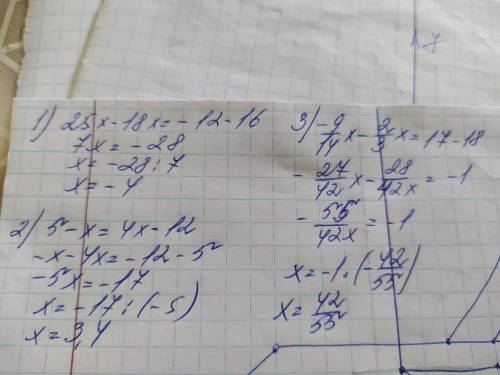 1) 25x-18x=-12-16
7x=-28
x=-28:7
x=-4
2) 5-x=4x-12
-x-4x=-12-5
-5x=-17
x=-17:(-5)
x=3,4
3) -9/14 x - 2/3 x = 17-18
-27/42 x - 28/42x = -1
-55/42x = -1
x=-1·(-42/55)
x=42/55